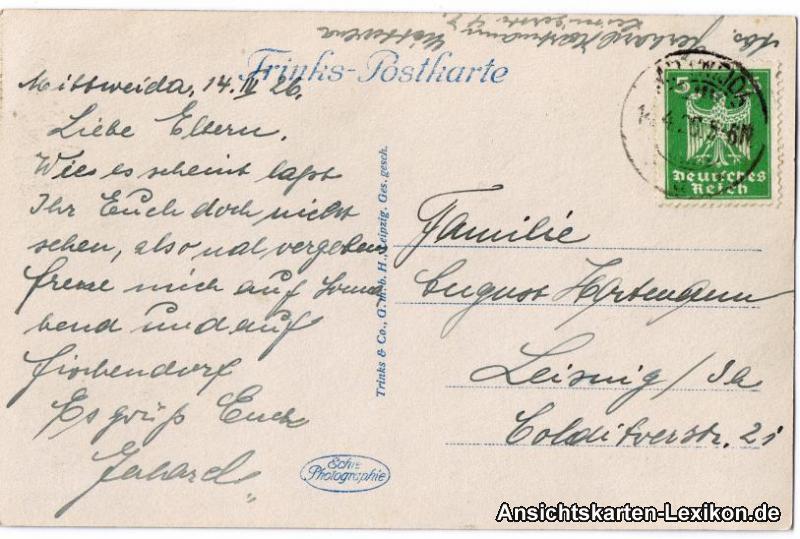 Abs. Gerhard Hartmann, Mittweida
Trinks-Postkarte
Mittweida, 14. IV 26.
Liebe Eltern.
Wie es scheint laßt
Ihr Euch doch nicht
sehen, also mal vergebens
freue mich auf Sonna
bend und auf
Fischendorf
Es grüß Euch
Gerhard
Trinks & Co., G. m. b. H., Leipzig. Ges. gesch.
Echte
Photographie
5
Deutsches
Reich
Familie
August Hartmann
Leisnig / Sa
Colditzerstr. 21
Ansichtskarten-Lexikon.de